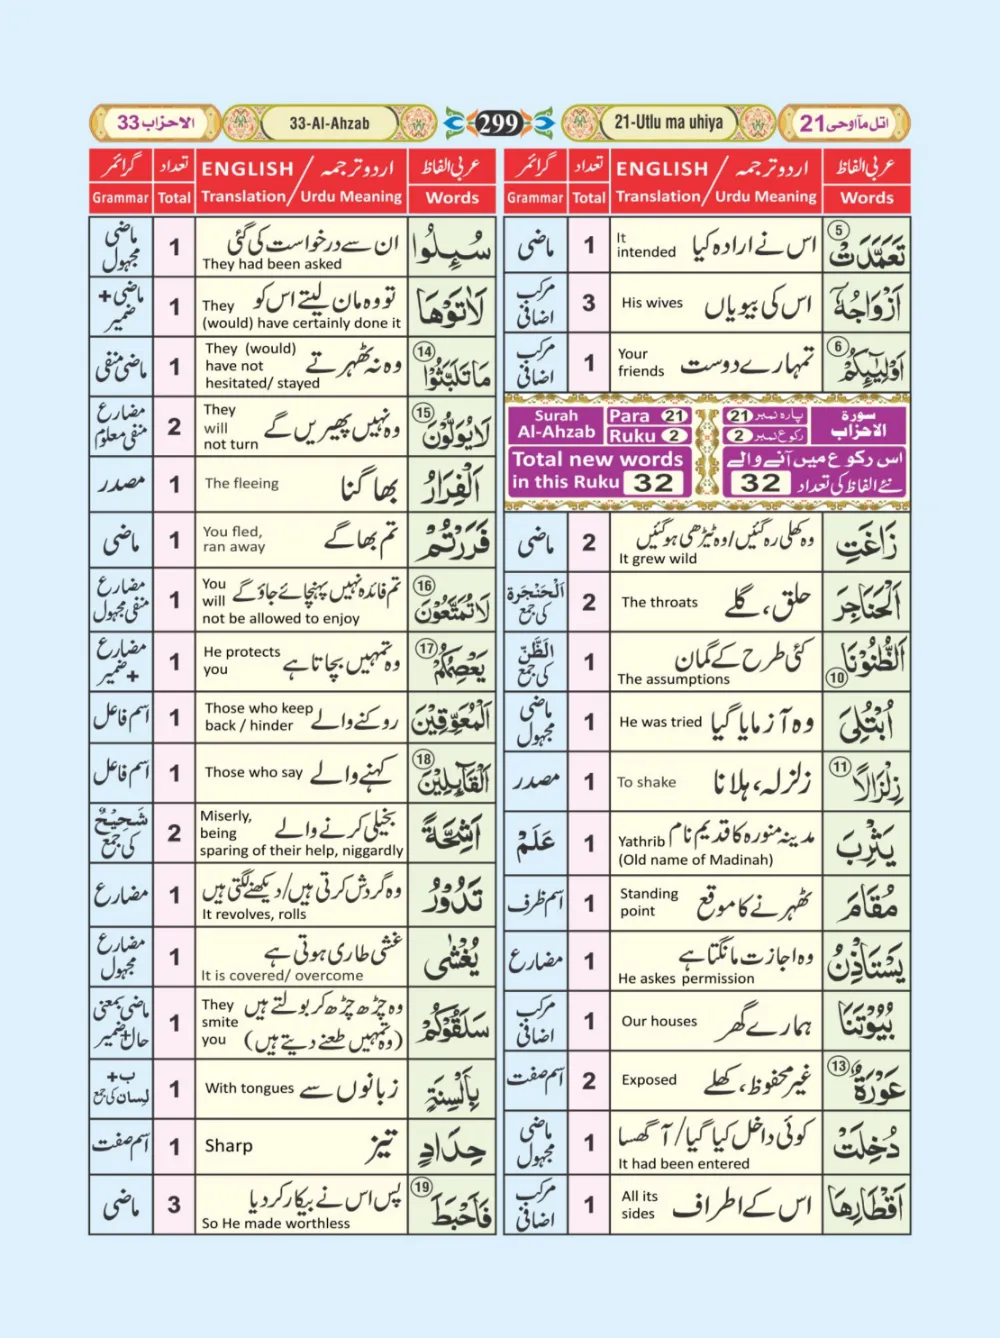 الاحزاب 33
33-Al-Ahzab
299
21-Utlu ma uhiya
اتل مآاوحی 21
عربی الفاظ
اردو ترجمہ / ENGLISH
تعداد
گرائمر
Words
Translation / Urdu Meaning
Total
Grammar
تَعَمَّدَتْ 5
اس نے ارادہ کیا
It
intended
1
ماضی
اَزْوَاجُهٗٓ
اس کی بیویاں
His wives
3
مرکب
اضافی
اَوْلِيٰٓئِكُمْ 6
تمہارے دوست
Your
friends
1
مرکب
اضافی
Surah
Al-Ahzab
Para 21
Ruku 2
پارہ نمبر 21
رکوع نمبر 2
سورة
الاحزاب
Total new words
in this Ruku 32
اس رکوع میں آنے والے
نئے الفاظ کی تعداد 32
زَاغَتِ
وہ کھلی رہ گئیں/وہ ٹیڑھی ہو گئیں
It grew wild
2
ماضی
الْحَنَاجِرَ
حلق، گلے
The throats
2
اَلْحَنْجَرَة
کی جمع
الظُّنُوْنَا 10
کئی طرح کے گمان
The assumptions
1
اَلظَّنّ
کی جمع
ابْتُلِيَ
وہ آزمایا گیا
He was tried
1
ماضی
مجہول
زِلْزَالًا 11
زلزلہ، ہلانا
To shake
1
مصدر
يَثْرِبَ
مدینہ منورہ کا قدیم نام
Yathrib
(Old name of Madinah)
1
عَلَمْ
مُقَامَ
ٹھہرنے کا موقع
Standing
point
1
اسم ظرف
يَسْتَاْذِنُ
وہ اجازت مانگتا ہے
He askes permission
1
مضارع
بُيُوْتَنَا
ہمارے گھر
Our houses
1
مرکب
اضافی
عَوْرَةٌ 13
غیر محفوظ، کھلے
Exposed
2
اسم صفت
دُخِلَتْ
کوئی داخل کیا گیا/آ گھسا
It had been entered
1
ماضی
مجہول
اَقْطَارِهَا
اس کے اطراف
All its
sides
1
مرکب
اضافی
عربی الفاظ
اردو ترجمہ / ENGLISH
تعداد
گرائمر
Words
Translation / Urdu Meaning
Total
Grammar
سُئِلُوا
ان سے درخواست کی گئی
They had been asked
1
ماضی
مجہول
لَاٰتَوْهَا
تو وہ مان لیتے اس کو
They
(would) have certainly done it
1
ماضی +
ضمیر
مَا تَلَبَّثُوْا 14
وہ نہ ٹھہرتے
They (would)
have not
hesitated/ stayed
1
ماضی منفی
لَا يُوَلُّوْنَ 15
وہ نہیں پھیریں گے
They
will
not turn
2
مضارع
منفی معلوم
الْفِرَارُ
بھاگنا
The fleeing
1
مصدر
فَرَرْتُمْ
تم بھاگے
You fled,
ran away
1
ماضی
لَا تُمَتَّعُوْنَ 16
تم فائدہ نہیں پہنچائے جاؤ گے
You
will
not be allowed to enjoy
1
مضارع
منفی مجہول
يَعْصِمُكُمْ 17
وہ تمہیں بچاتا ہے
He protects
you
1
مضارع
+ ضمیر
الْمُعَوِّقِيْنَ
روکنے والے
Those who keep
back / hinder
1
اسم فاعل
الْقَآئِلِيْنَ 18
کہنے والے
Those who say
1
اسم فاعل
اَشِحَّةً
بخیلی کرنے والے
Miserly,
being
sparing of their help, niggardly
2
شَحِیْحٌ
کی جمع
تَدُوْرُ
وہ گردش کرتی ہیں/دیکھنے لگتی ہیں
It revolves, rolls
1
مضارع
يُغْشٰى
غشی طاری ہوتی ہے
It is covered/ overcome
1
مضارع
مجہول
سَلَقُوْكُمْ
وہ چڑھ چڑھ کر بولتے ہیں
(وہ تمہیں طعنے دیتے ہیں)
They
smite
you
1
ماضی بمعنی
حال+ضمیر
بِاَلْسِنَةٍ
زبانوں سے
With tongues
1
ب +
لِسان کی جمع
حِدَادٍ
تیز
Sharp
1
اسم صفت
فَاَحْبَطَ 19
پس اس نے بیکار کر دیا
So He made worthless
3
ماضی